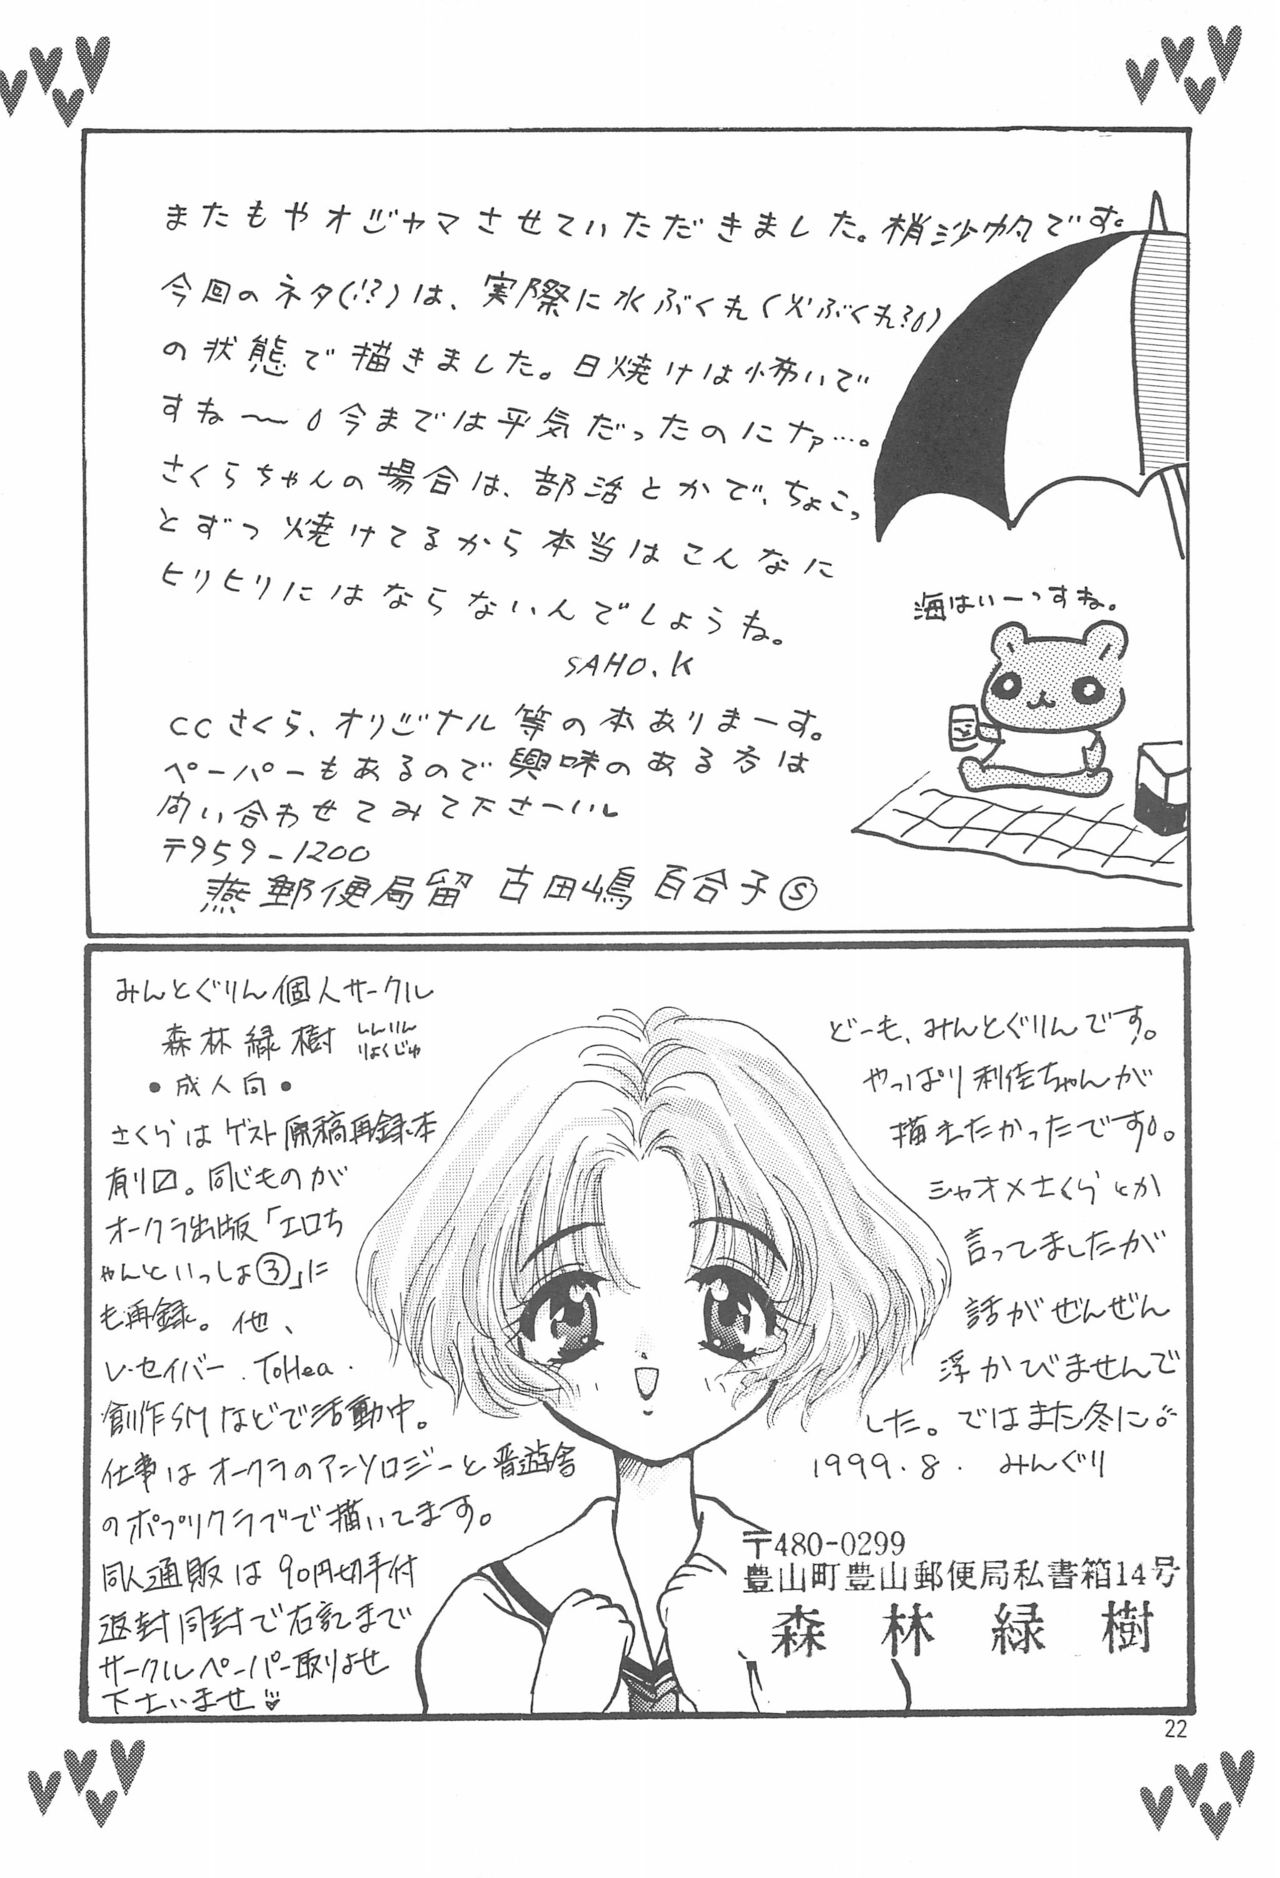 またもやオジャマさせていただきました。梢沙帆です。
今回のネタ(!?)は、実際に水ぶくれ(火ぶくれ?)
の状態で描きました。日焼けは怖いで
すね〜今までは平気だったのにナァ…。
さくらちゃんの場合は、部活とかで、ちょこっ
とずつ焼けてるから本当はこんなに
ヒリヒリにはならないんでしょうね。
SAHO.K
海はいーっすね。
CCさくら、オリジナル等の本ありまーす。
ペーパーもあるので興味のある方は
問い合わせてみて下さーいし
〒959-1200
燕郵便局留 古田嶋百合子Ⓢ
みんとぐりん個人サークル
森林緑樹 しんりん
りょくじゅ
●成人向●
さくらはゲスト原稿再録本
有り〼。同じものが
オークラ出版「エロち
ゃんといっしょ③」に
も再録。他、
Vセイバー.ToHea.
創作SMなどで活動中。
仕事はオークラのアンソロジーと晋遊舎
のポプリクラブで描いてます。
同人通販は90円切手付
返封同封で右記まで
サークルペーパー取りよせ
下さいませ♡
どーも、みんとぐりんです。
やっぱり利佳ちゃんが
描きたかったです。
シャオメさくらとか
言ってましたが
話がぜんぜん
浮かびませんで
した。ではまた冬に
1999.8. みんぐり
〒480-0299
豊山町豊山郵便局私書箱14号
森林緑樹
22